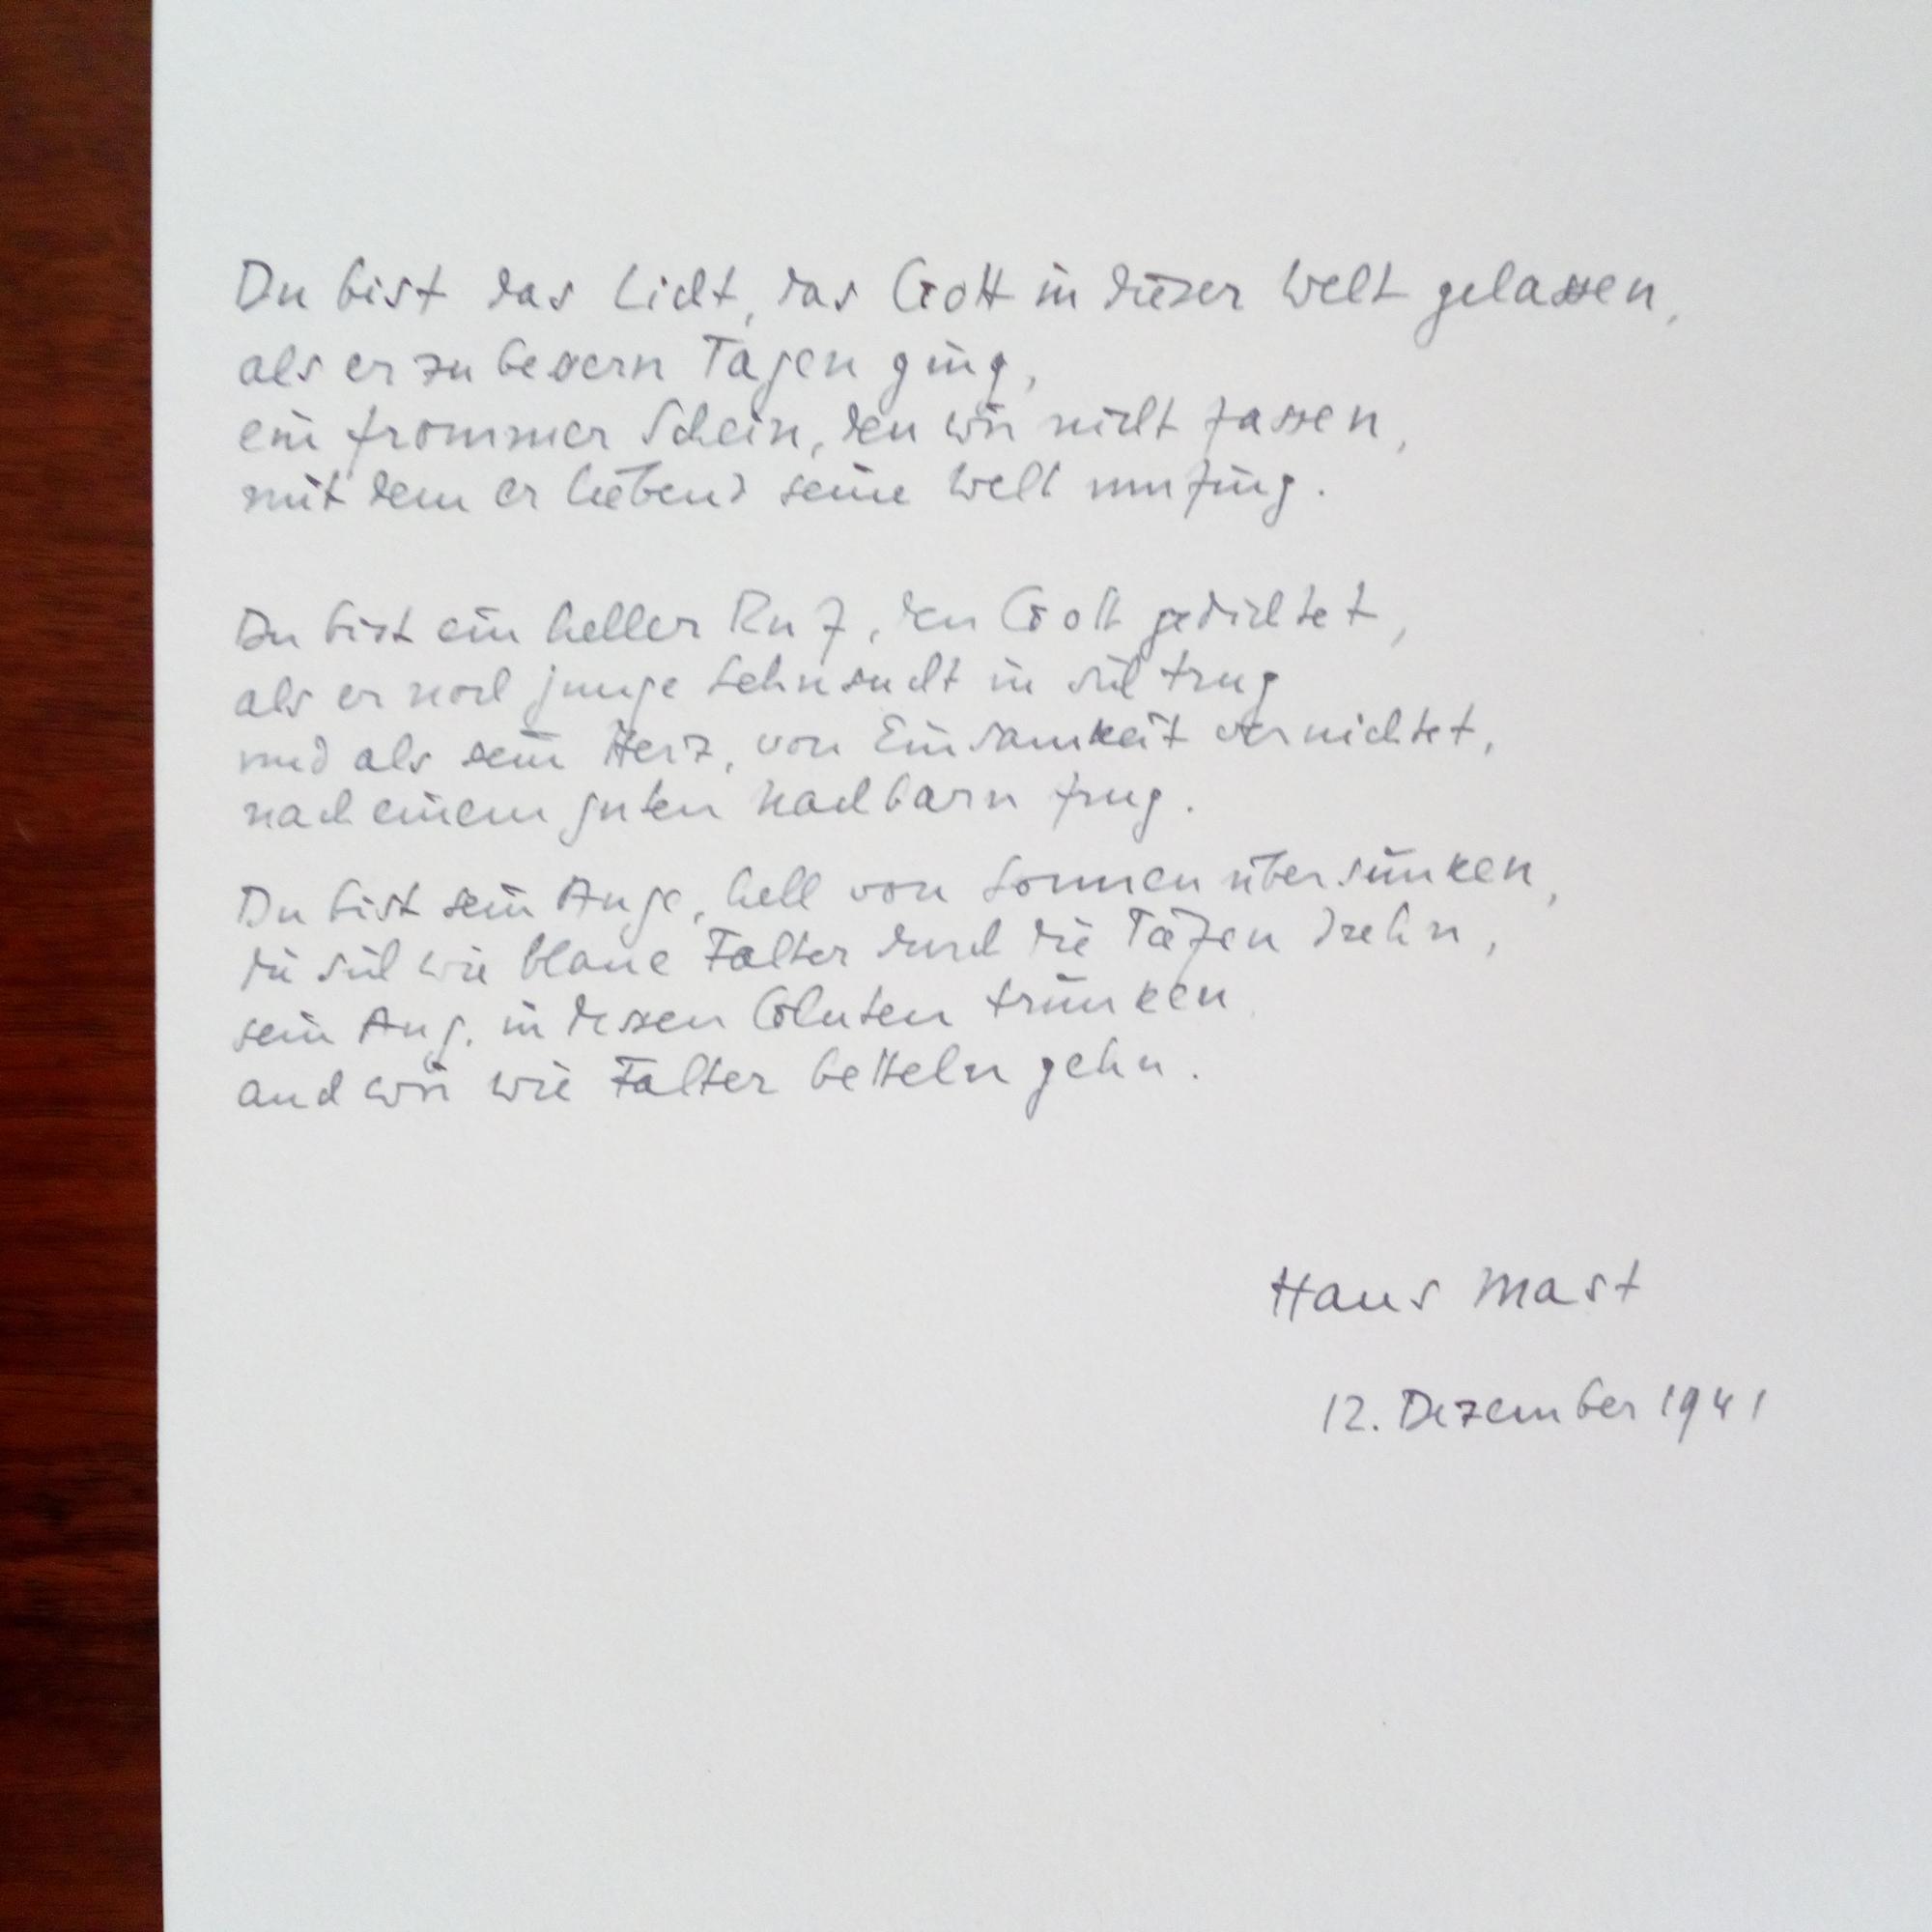 Du bist das Licht, das Gott in dieser Welt gelassen,
als er zu bessern Tagen ging,
ein frommer Schein, den wir nicht fassen,
mit dem er liebend seine Welt umfing.
Du bist ein heller Ruf, den Gott gedichtet,
als er noch junge Sehnsucht in sich trug
und als sein Herz, von Einsamkeit vernichtet,
nach einem guten Nachbarn frug.
Du bist sein Auge, hell von Sonnen übersunken,
die sich wie blaue Falter durch die Tiefen drehn,
sein Aug, in dessen Gluten trunken
auch wir wie Falter betteln gehn.
Hans Mast
12. Dezember 1941